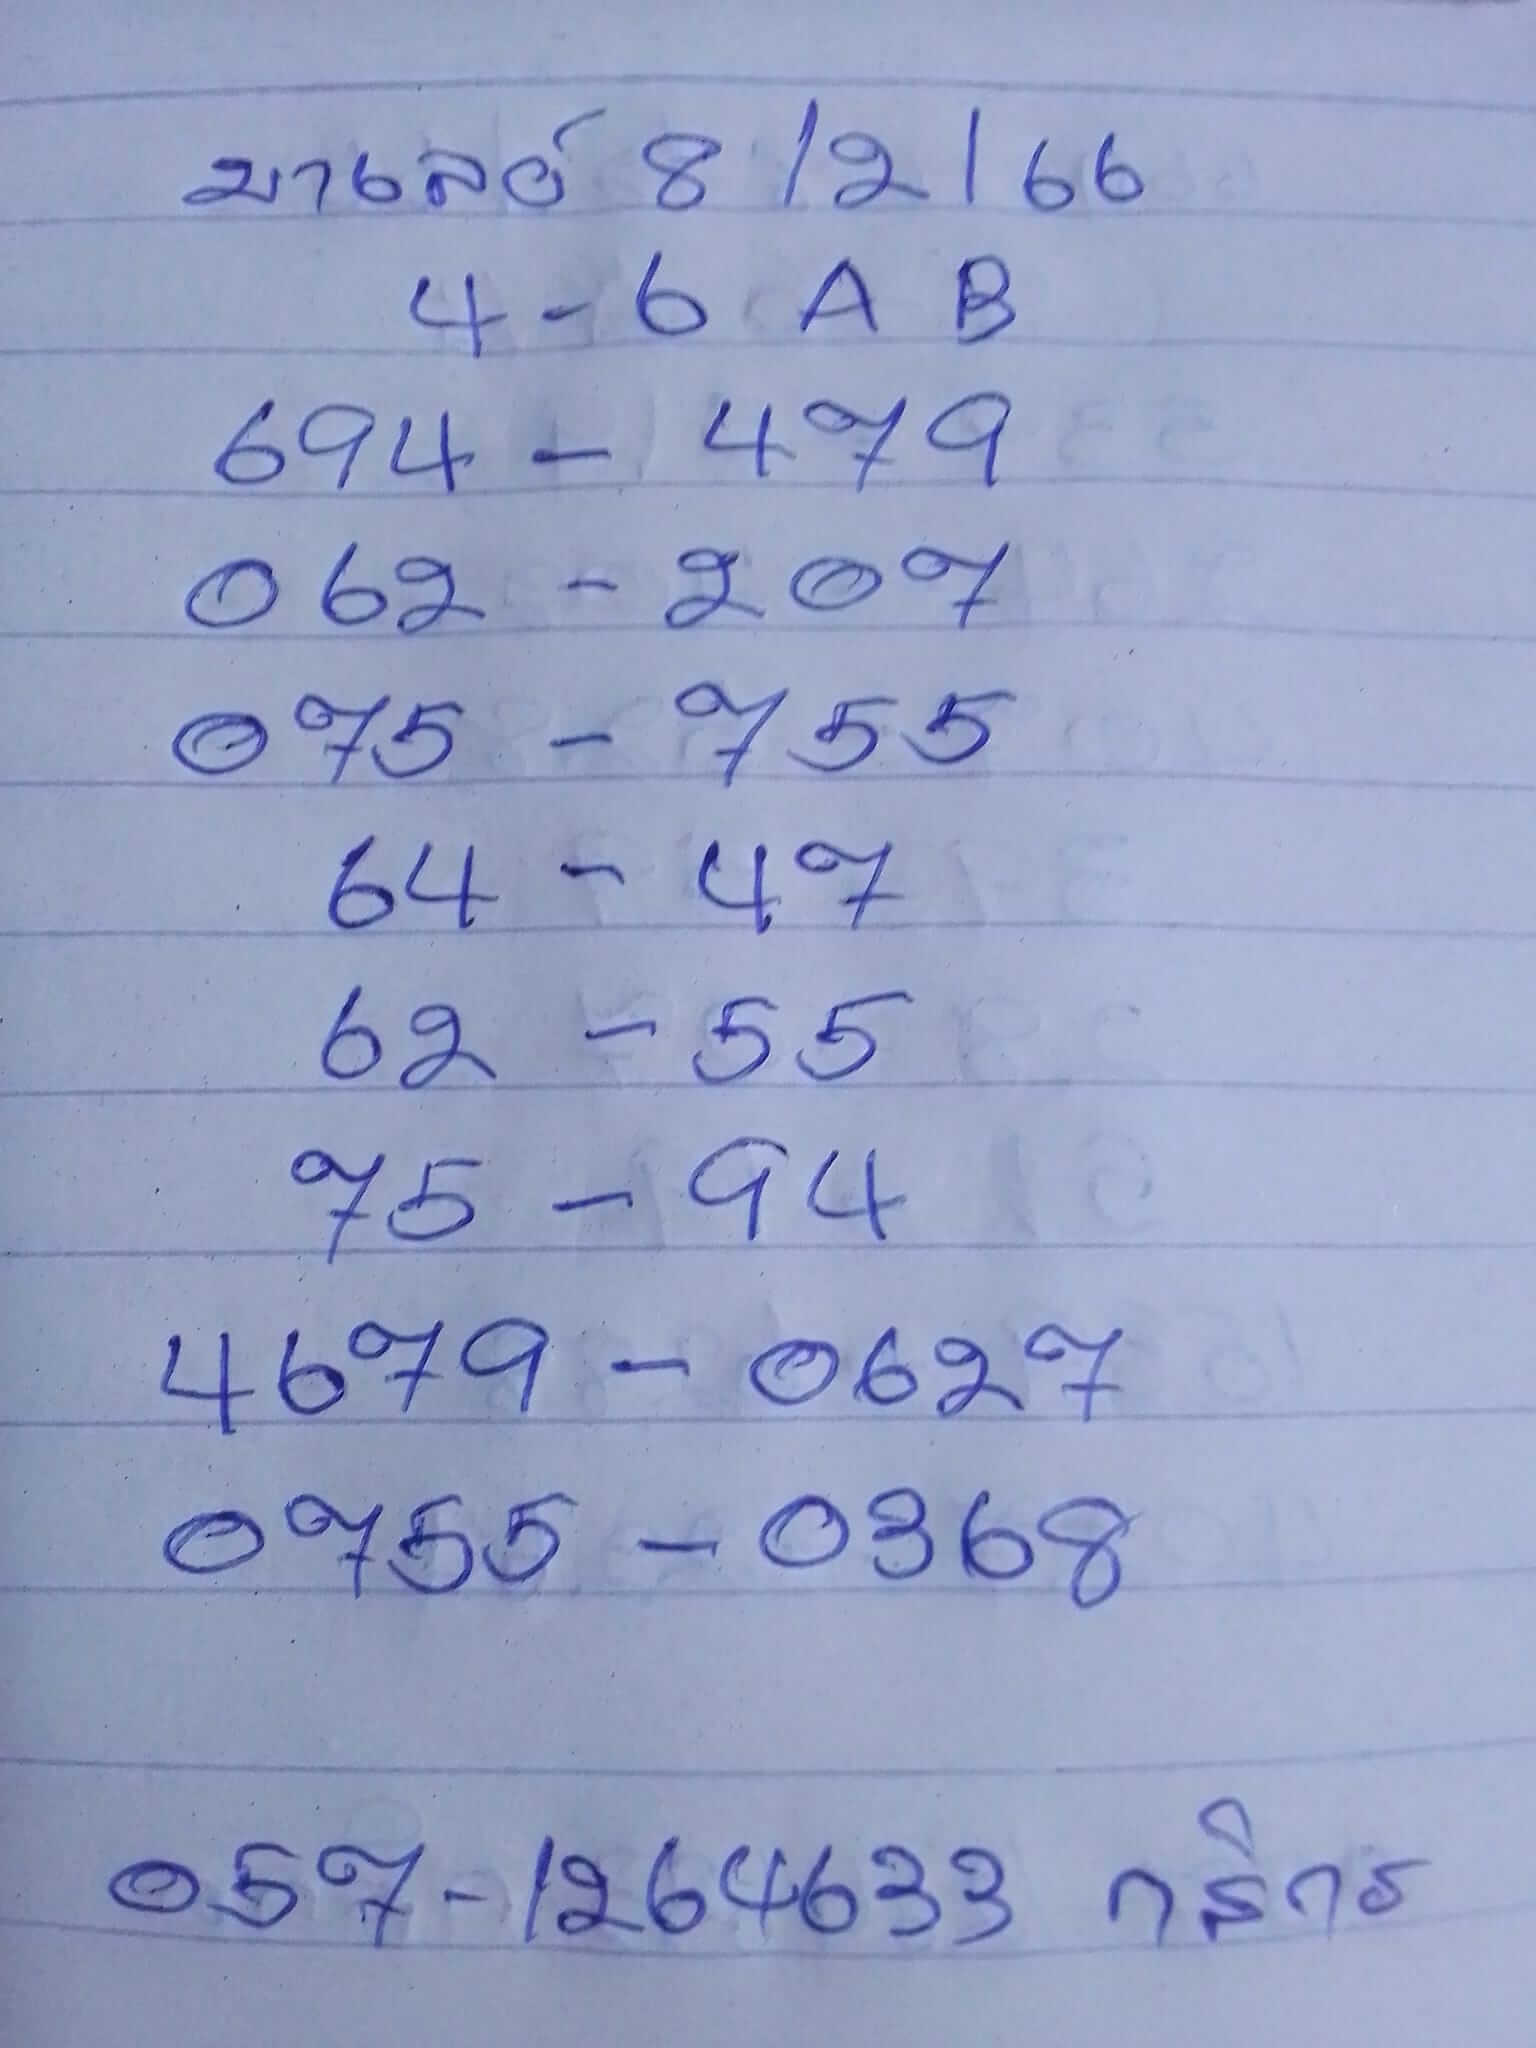 มาเลย์ 8/2/66
4-6 A B
694-479
062-207
075-755
64-47
62-55
75-94
4679-0627
0755-0368
057-1264633 กสิกร